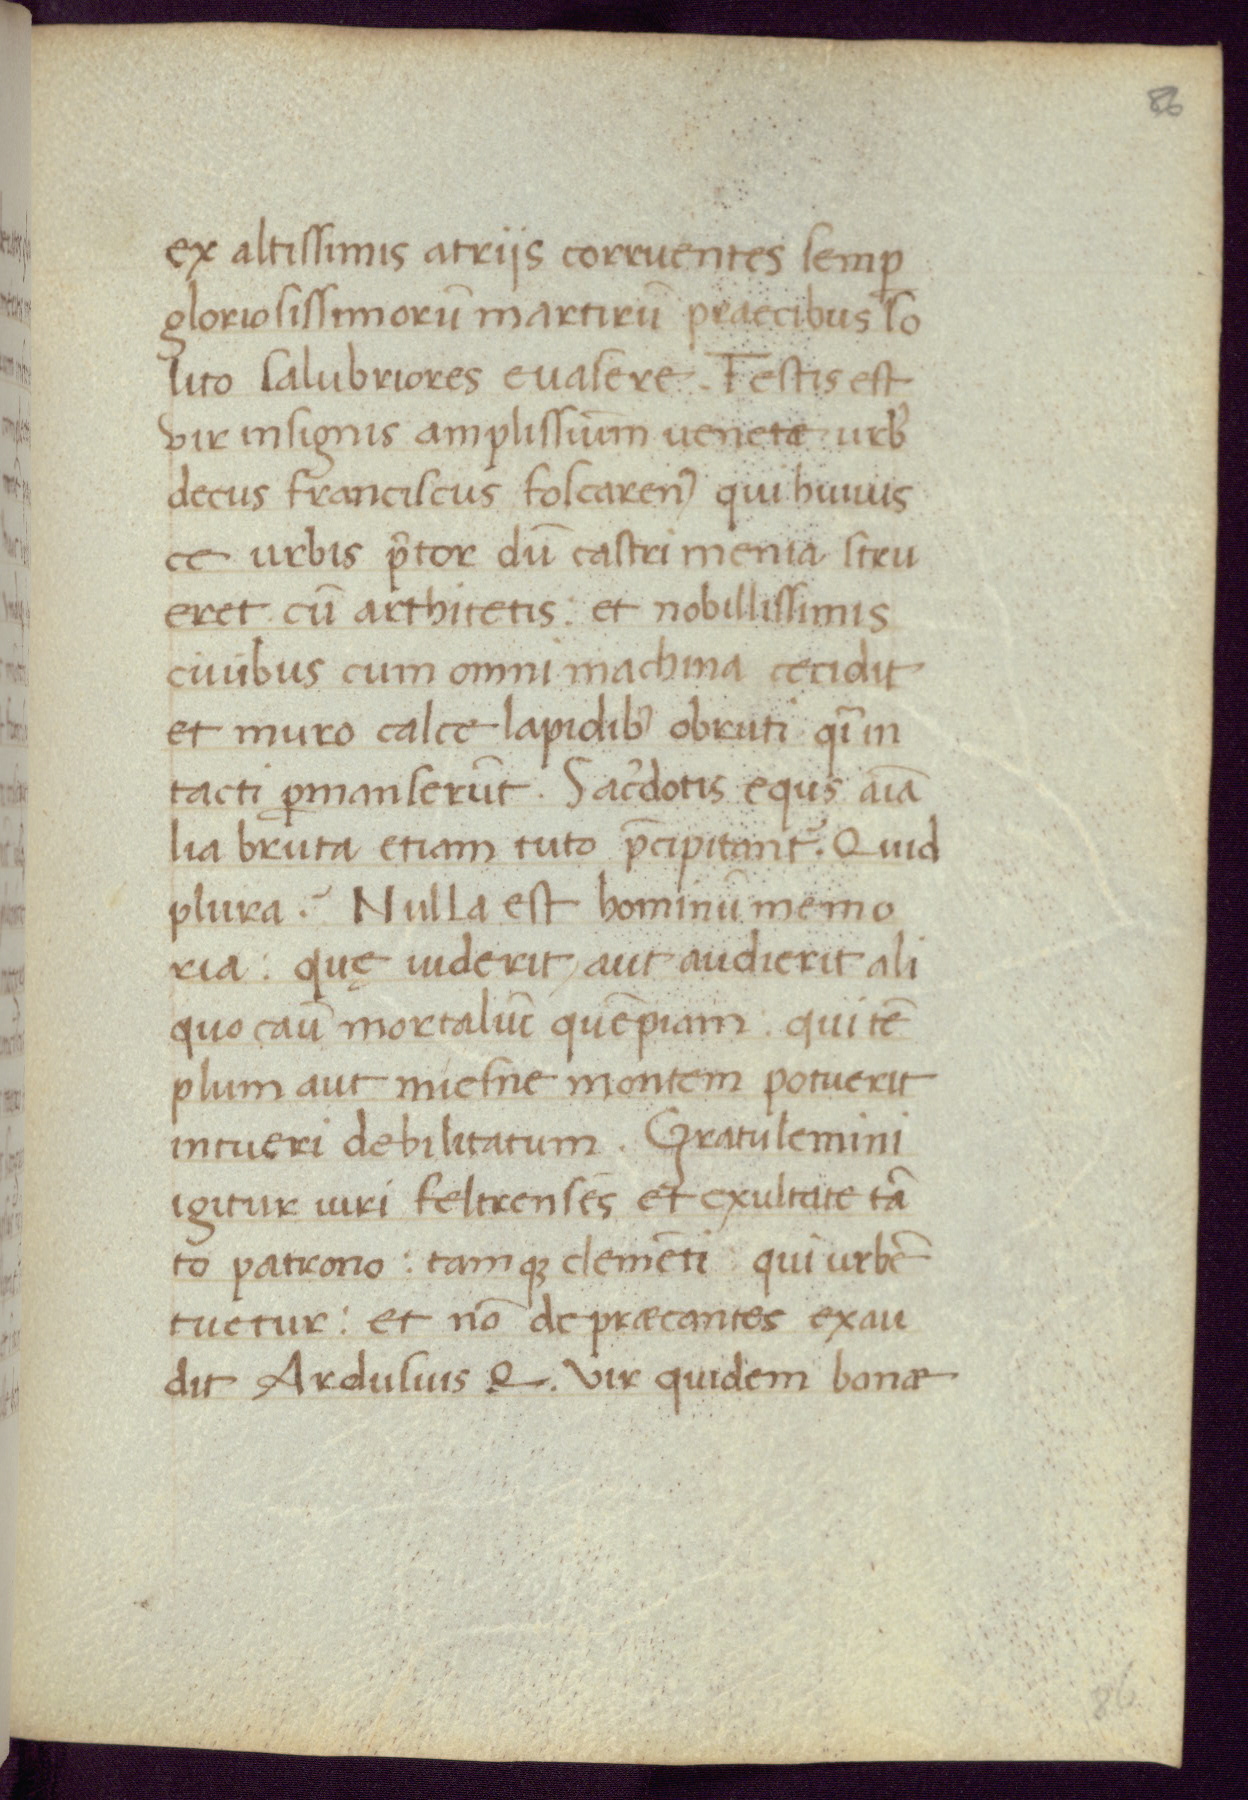 86
ex altissimis atrijs corruentes semp̲
gloriosissimorū martirū praecibus so
lito salubriores euasere. Testis est
vir insignis amplissimū uenetæ urbꝰ
decus franciscus foscarenꝰ qui huius
ce urbis p̄tor dū castri menia stru
eret cū arthitetis: et nobillissimis
ciuibus cum omni machina cecidit
et muro calce lapidibꝰ obruti qī in
tacti ꝑmanserūt. Sac̄dotis equs aīa
lia bruta etiam tuto p̄cipitant̄. Quid
plura? Nulla est hominū memo
ria: quę uiderit aut audierit ali
quo caū mortaliū quēpiam: qui tē
plum aut miesne montem potuerit
intueri debilitatum. Gratulemini
igitur uiri feltrenses et exultate tā
to patrono: tamqꝫ clemēti: qui urbē
tuetur: et nō depræcantes exau
dit Ardusuis Q. vir quidem bonæ
86